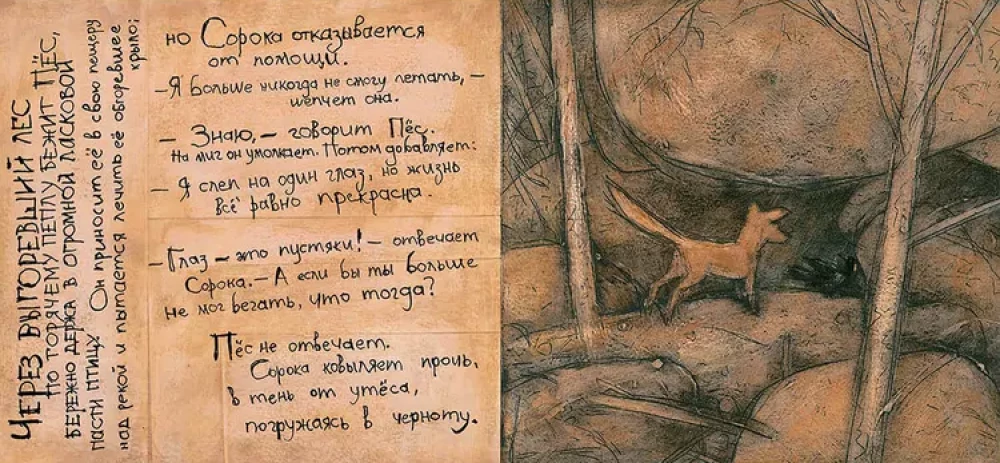 ЧЕРЕЗ ВЫГОРЕВШИЙ ЛЕС
ПО ГОРЯЧЕМУ ПЕПЛУ БЕЖИТ ПЁС,
БЕРЕЖНО ДЕРЖА В ОГРОМНОЙ ЛАСКОВОЙ
ПАСТИ ПТИЦУ. Он приносит её в свою пещеру
над рекой и пытается лечить её обгоревшее
крыло;
но Сорока отказывается
от помощи.
– Я больше никогда не смогу летать, –
шепчет она.
– Знаю, – говорит Пёс.
На миг он умолкает. Потом добавляет:
– Я слеп на один глаз, но жизнь
всё равно прекрасна.
– Глаз – это пустяки! – отвечает
Сорока. – А если бы ты больше
не мог бегать, что тогда?
Пёс не отвечает.
Сорока ковыляет прочь,
в тень от утёса,
погружаясь в черноту.